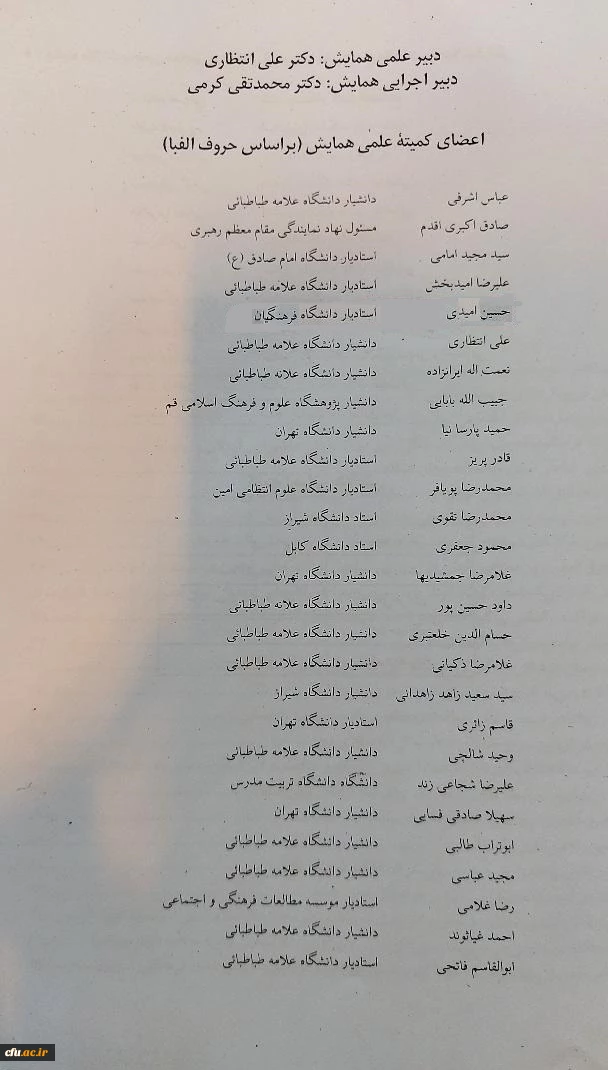 دبیر علمی همایش: دکتر علی انتظاری
دبیر اجرایی همایش: دکتر محمدتقی کرمی
اعضای کمیتهٔ علمی همایش (براساس حروف الفبا)
عباس اشرفی دانشیار دانشگاه علامه طباطبائی
صادق اکبری اقدم مسئول نهاد نمایندگی مقام معظم رهبری
سید مجید امامی استادیار دانشگاه امام صادق (ع)
علیرضا امیدبخش استادیار دانشگاه علامه طباطبائی
حسین امیدی استادیار دانشگاه فرهنگیان
علی انتظاری دانشیار دانشگاه علامه طباطبائی
نعمت اله ایرانزاده دانشیار دانشگاه علامه طباطبائی
حبیب الله بابایی دانشیار پژوهشگاه علوم و فرهنگ اسلامی قم
حمید پارسا نیا دانشیار دانشگاه تهران
قادر پریز استادیار دانشگاه علامه طباطبائی
محمدرضا پویافر استادیار دانشگاه علوم انتظامی امین
محمدرضا تقوی استاد دانشگاه شیراز
محمود جعفری استاد دانشگاه کابل
غلامرضا جمشیدیها دانشیار دانشگاه تهران
داود حسین پور دانشیار دانشگاه علامه طباطبائی
حسام الدین خلعتبری دانشیار دانشگاه علامه طباطبائی
غلامرضا ذکیانی دانشیار دانشگاه علامه طباطبائی
سید سعید زاهد زاهدانی دانشیار دانشگاه شیراز
قاسم زائری استادیار دانشگاه تهران
وحید شالچی دانشیار دانشگاه علامه طباطبائی
علیرضا شجاعی زند دانشگاه دانشگاه تربیت مدرس
سهیلا صادقی فسایی دانشیار دانشگاه تهران
ابوتراب طالبی دانشیار دانشگاه علامه طباطبائی
مجید عباسی دانشیار دانشگاه علامه طباطبائی
رضا غلامی استادیار موسسه مطالعات فرهنگی و اجتماعی
احمد غیاثوند دانشیار دانشگاه علامه طباطبائی
ابوالقاسم فاتحی استادیار دانشگاه علامه طباطبائی
cfu.ac.ir